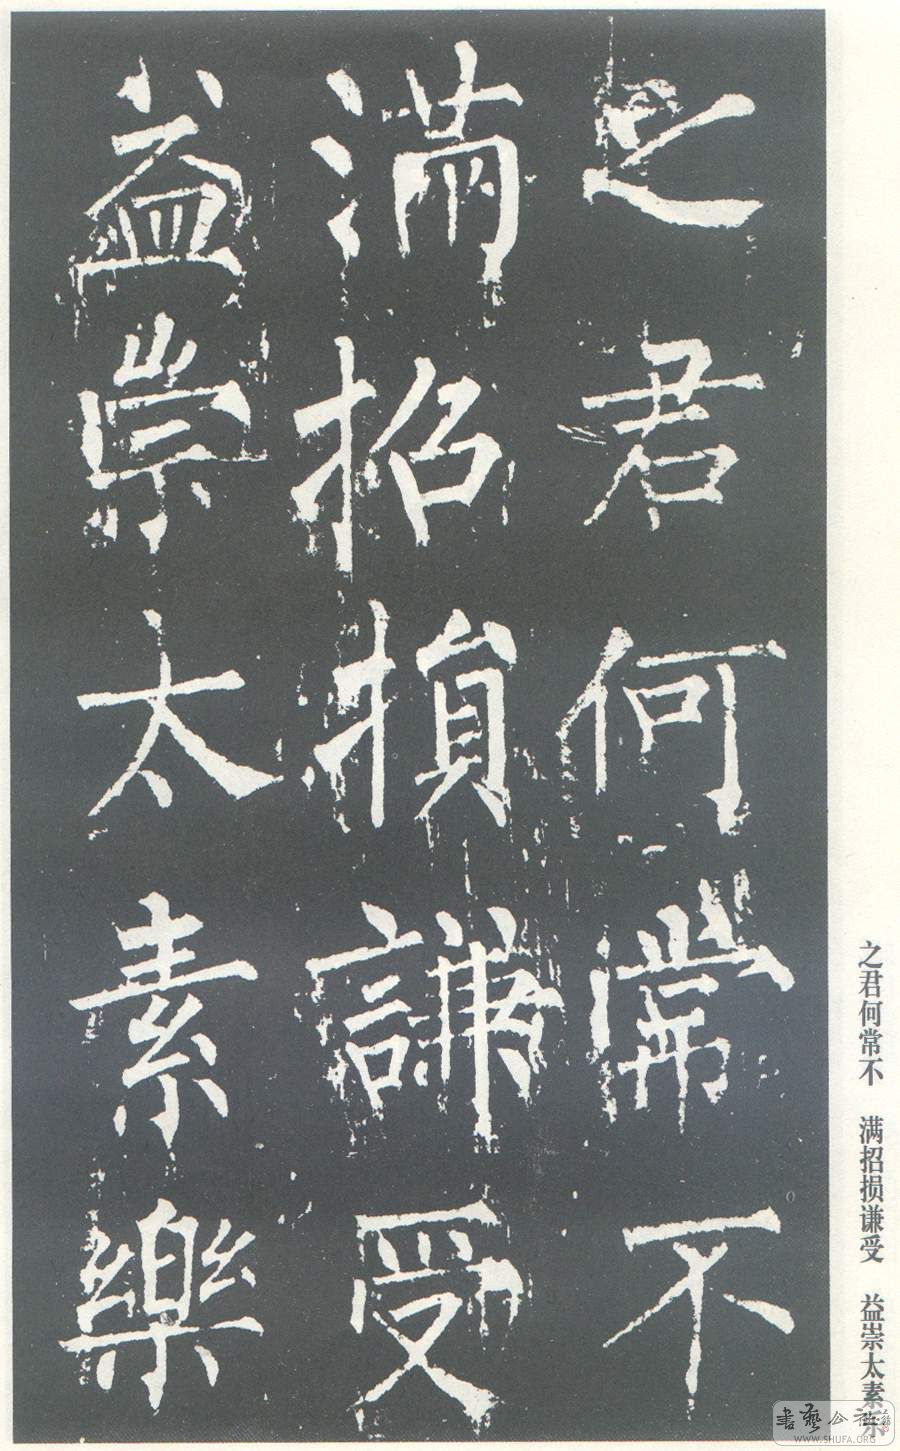 之君何常不
滿招損謙受
益崇太素樂
之君何常不 满招损谦受 益崇太素乐
WWW.SHUFA.ORG